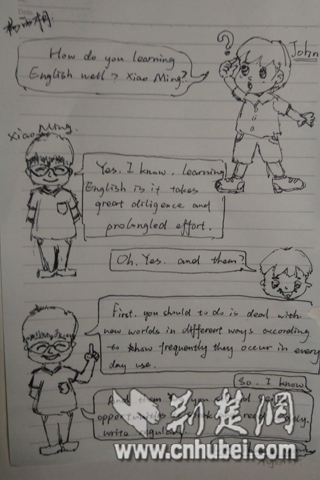 How do you learning
English well? Xiao Ming?
John
Xiao Ming.
Yes. I know. learning
English is it takes
great diligence and
prolangled effort.
Oh. Yes. and them?
First. you should to do is deal with
new worlds in different ways according
to how frequently they occur in every
day use.
So. I know
you
opportunities
write regular
荆楚网
www.cnhubei.com